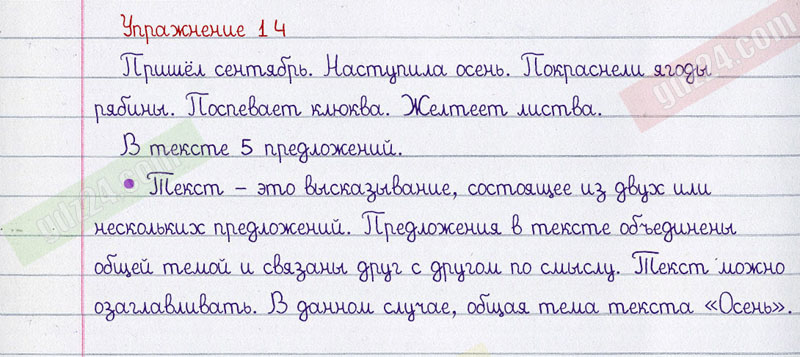 Упражнение 14
Пришёл сентябрь. Наступила осень. Покраснели ягоды
рябины. Поспевает клюква. Желтеет листва.
В тексте 5 предложений.
• Текст – это высказывание, состоящее из двух или
нескольких предложений. Предложения в тексте объединены
общей темой и связаны друг с другом по смыслу. Текст можно
озаглавливать. В данном случае, общая тема текста «Осень».
yuz24.com
yuz24.com